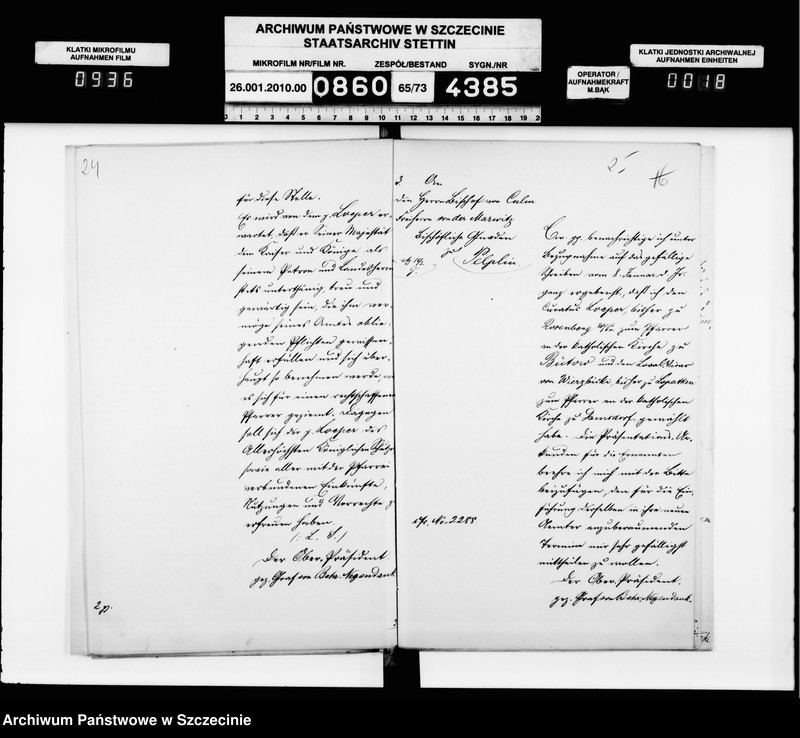 ARCHIWUM PAŃSTWOWE W SZCZECINIE
STAATSARCHIV STETTIN
KLATKI MIKROFILMU
AUFNAHMEN FILM
0936
MIKROFILM NR/FILM NR.
ZESPÓŁ/BESTAND
SYGN./NR
26.001.2010.00
0860
65/73
4385
OPERATOR /
AUFNAHMEKRAFT
M.BĄK
KLATKI JEDNOSTKI ARCHIWALNEJ
AUFNAHMEN EINHEITEN
0018
0 1 2 3 4 5 6 7 8 9 10 11 12 13 14 15 16 17 18 19 2
24
für diese Stelle.
Es wird von dem p. Looper er-
wartet, daß er Seiner Majestät
dem Kaiser und Könige als
seinem Patron und Landesherrn
stets unterthänig, treu und
gewärtig sein, die ihm ver-
möge seines Amtes oblie-
genden Pflichten gewissen-
haft erfüllen und sich über-
haupt so benehmen werde, w
es sich für einen rechtschaffenen
Pfarrer geziemt. Dagegen
soll sich der p. Looper des
Allerhöchsten Königlichen Schutzes
sowie aller mit der Pfarre
verbundenen Einkünfte,
Nutzungen und Vorrechte z
erfreuen haben.
(: L. S.)
Der Ober-Präsident
gez. Graf von Behr-Negendank
2 p.
25
16
3. An
den Herrn Bischof von Culm
Freiherrn von der Marwitz
Bischöfliche Gnaden
zu
Pelplin.
cfr. No. 2288
Ew. pp. benachrichtige ich unter
Bezugnahme auf das gefällige
Schreiben vom 8. Januar d. Js.
ganz ergebenst, daß ich den
Curatus Looper, bisher zu
Rosenberg W/Pr. zum Pfarrer
an der katholischen Kirche zu
Bütow und den Localvikar
von Wierzbicki, bisher zu Lopatken
zum Pfarrer an der katholischen
Kirche zu Damsdorf gewählt
habe. Die Präsentations-Ur-
kunden für die Ernannten
beehre ich mich mit der Bitte
beizufügen, den für die Ein-
führung derselben in ihre neuen
Aemter anzuberaumenden
Termin mir sehr gefälligst
mittheilen zu wollen.
Der Ober-Präsident.
gez. Graf von Behr-Negendank.
Archiwum Państwowe w Szczecinie